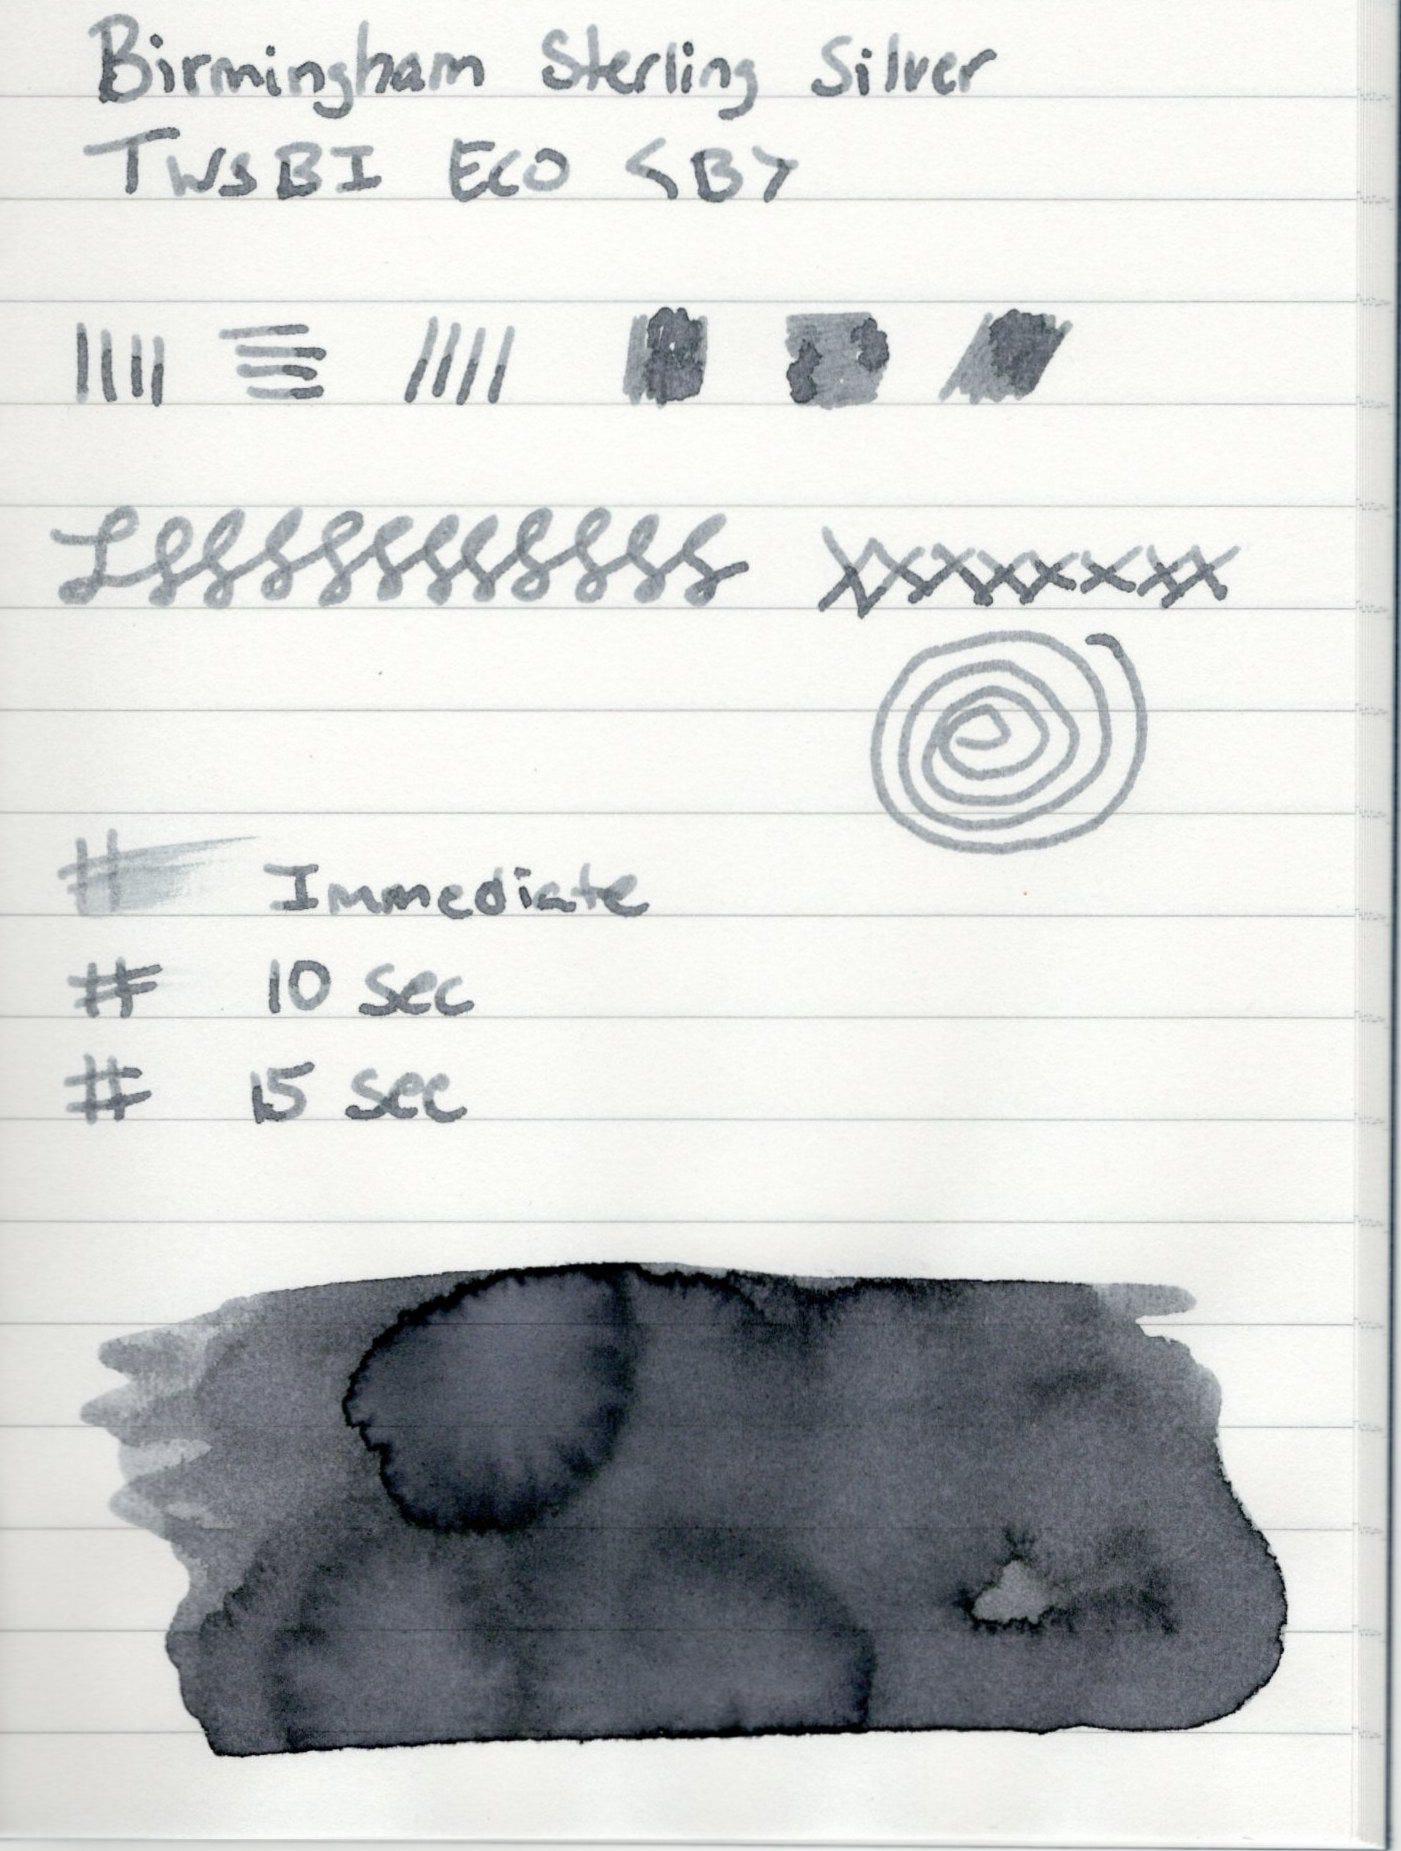 Birmingham Sterling Silver
TWSBI ECO <B>
# Immediate
# 10 sec
# 15 sec